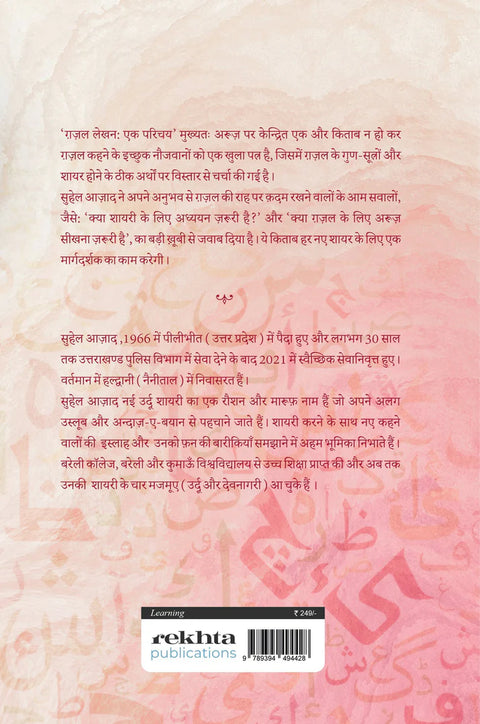 ‘ग़ज़ल लेखन: एक परिचय’ मुख्यतः अरूज़ पर केन्द्रित एक और किताब न हो कर
ग़ज़ल कहने के इच्छुक नौजवानों को एक खुला पत्र है, जिसमें ग़ज़ल के गुण-सूत्रों और
शायर होने के ठीक अर्थों पर विस्तार से चर्चा की गई है।
सुहेल आज़ाद ने अपने अनुभव से ग़ज़ल की राह पर क़दम रखने वालों के आम सवालों,
जैसे: ‘क्या शायरी के लिए अध्ययन ज़रूरी है?’ और ‘क्या ग़ज़ल के लिए अरूज़
सीखना ज़रूरी है’, का बड़ी ख़ूबी से जवाब दिया है। ये किताब हर नए शायर के लिए एक
मार्गदर्शक का काम करेगी।
सुहेल आज़ाद ,1966 में पीलीभीत ( उत्तर प्रदेश ) में पैदा हुए और लगभग 30 साल
तक उत्तराखण्ड पुलिस विभाग में सेवा देने के बाद 2021 में स्वैच्छिक सेवानिवृत्त हुए।
वर्तमान में हल्द्वानी ( नैनीताल ) में निवासरत हैं।
सुहेल आज़ाद नई उर्दू शायरी का एक रौशन और मारूफ़ नाम हैं जो अपने अलग
उस्लूब और अन्दाज़-ए-बयान से पहचाने जाते हैं। शायरी करने के साथ नए कहने
वालों की इस्लाह और उनको फ़न की बारीकियाँ समझाने में अहम भूमिका निभाते हैं।
बरेली कॉलेज, बरेली और कुमाऊँ विश्वविद्यालय से उच्च शिक्षा प्राप्त की और अब तक
उनकी शायरी के चार मजमूए ( उर्दू और देवनागरी ) आ चुके हैं ।
Learning
₹ 249/-
rekhta
publications
9 789394 494428